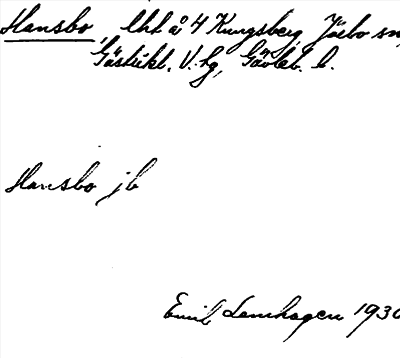 Hansbo, lht å 4 Kungsberg, Järbo sn,
Gästrikl. V. hg, Gävleb. l.
Hansbo jb
Emil Lenhagen 1930